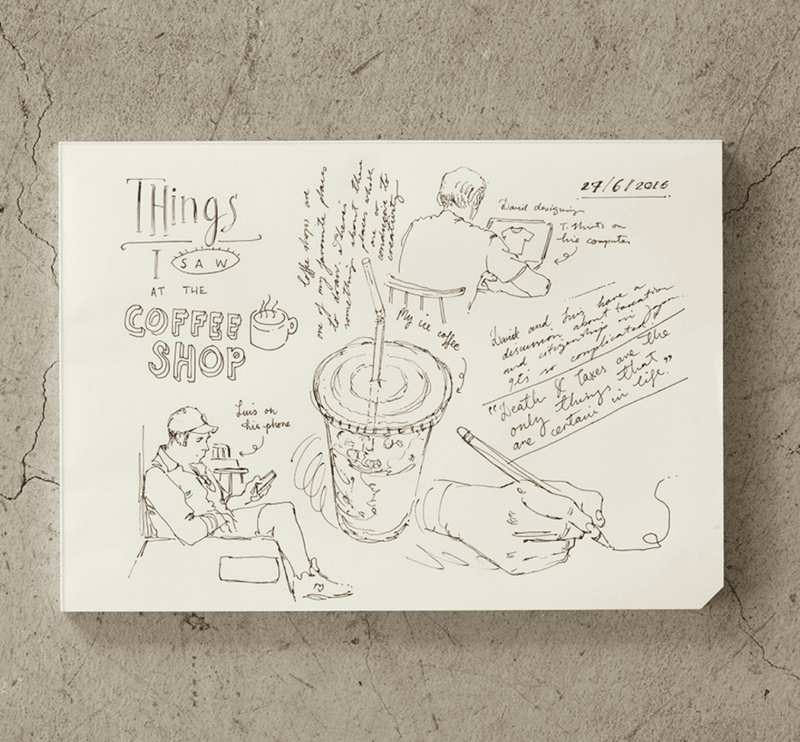 THings
I SAW
AT THE
COFFEE
SHOP
Coffee shops are
one of my favorite places
to draw. There's
something about this
place
are so
conducive to
creativity
27/6/2016
David designing
T. Shirts on
his computer
My ice coffee
David and have a
discussion about taxation
and citizenship in
It's so complicated!
"Death & Taxes are the
only things that
are certain in life."
Luis on
his phone